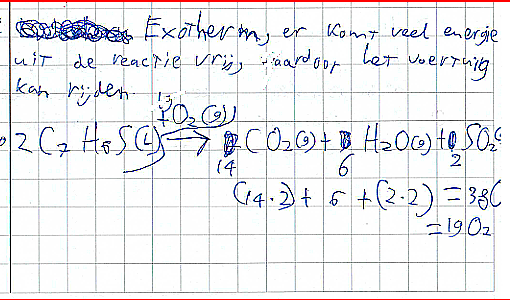 Exotherm, er komt veel energie
uit de reactie vrij, waardoor het voertuig
kan rijden
2 C7 H6 S(l) + 19 O2(g) → 14 CO2(g) + 6 H2O(g) + 2 SO2
(14·2) + 6 + (2·2) = 38
= 19 O2